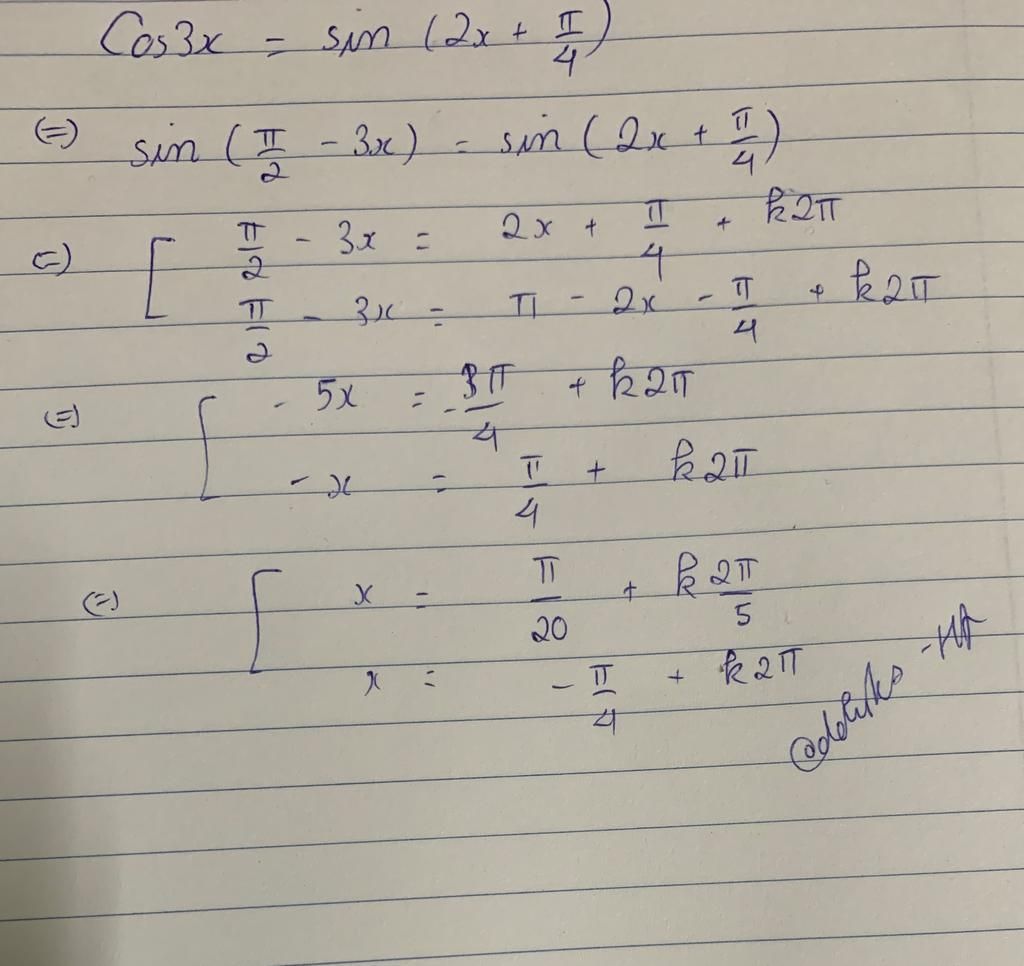 Cos3x = sin (2x + π/4)
(=) sin (π/2 - 3x) = sin (2x + π/4)
(=) [ π/2 - 3x = 2x + π/4 + k2π
π/2 - 3x = π - 2x - π/4 + k2π
(=) [ - 5x = -3π/4 + k2π
- x = π/4 + k2π
(=) [ x = π/20 + k 2π/5
x = - π/4 + k2π